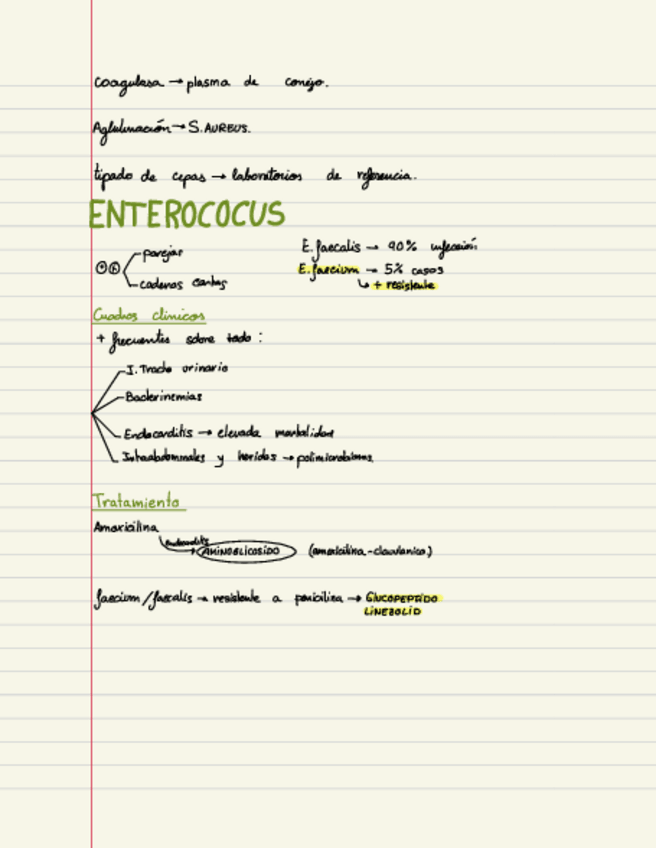 Coagulasa → plasma de conejo.
Aglutinación → S. AUREUS.
tipado de cepas → laboratorios de referencia.
ENTEROCOCUS
parejas
cadenas cortas
E. faecalis → 90% infección
E. faecium → 5% casos
↳ + resistente
Cuadros clínicos
+ frecuentes sobre todo :
I. Tracto urinario
Bacteriemias
Endocarditis → elevada mortalidad
Intraabdominales y heridas → polimicrobianas
Tratamiento
Amoxicilina
Endocarditis
AMINOGLICOSIDO (amoxicilina-clavulanico)
faecium/faecalis → resistente a penicilina → GLUCOPEPTIDO
LINEZOLID